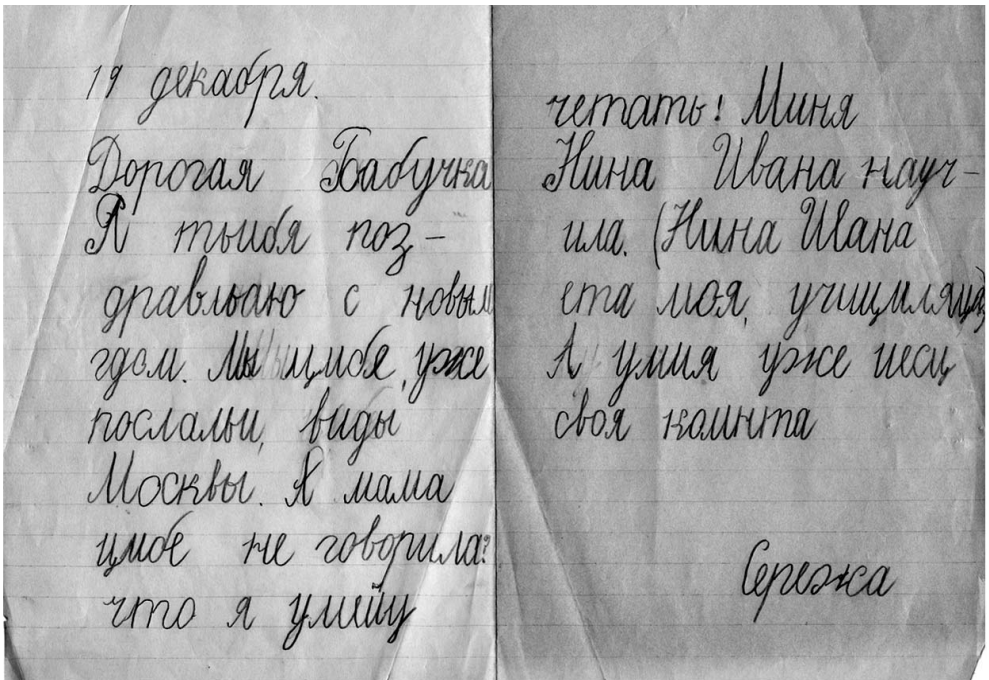 19 декабря.
Дорогая Бабучка
Я тыибя поз-
дравльаю с новым
гдом. Мы цибе, уже
послальи, виды
Москвы. А мама
цибе не говорила?
что я умейу
четать! Миня
Нина Ивана науч-
ила. (Нина Ивана
ета моя, учициляца)
А умия уже иесц
своя комнта
Сережа